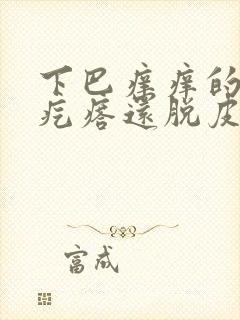 下巴痒痒的
疙瘩还脱皮
富成